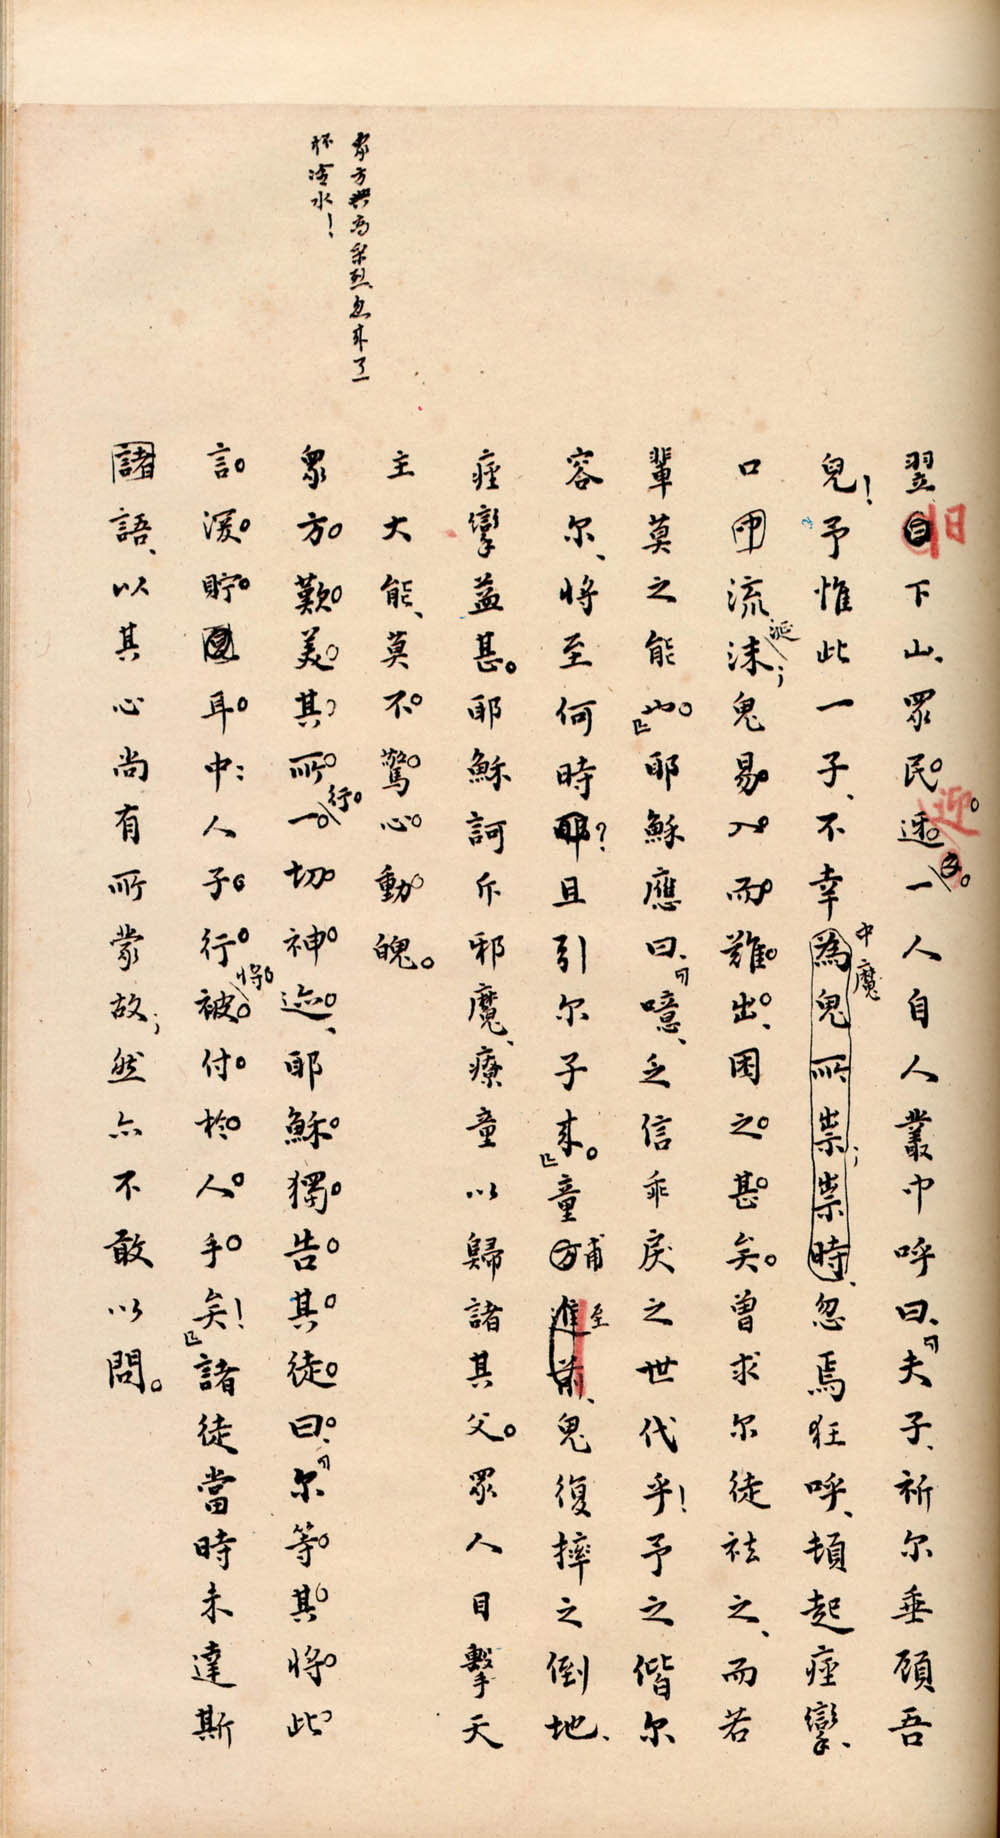 眾方興高采烈忽來了一
杯冷水！
翌日下山、眾民迎之。一人自人叢中呼曰、「夫子、祈尔垂顧吾
兒！予惟此一子、不幸中魔為鬼所祟；祟時、忽焉狂呼、頓起痙攣、
口中流涎沫；鬼易入而難出、困之甚矣。曾求尔徒祛之、而若
輩莫之能也。」耶穌應曰、「噫、乏信乖戾之世代乎！予之偕尔
容尔、將至何時耶？且引尔子來。」童方甫進前至、鬼復摔之倒地、
痙攣益甚。耶穌訶斥邪魔、療童以歸諸其父。眾人目擊天
主大能、莫不驚心動魄。
眾方歎美其所行一切神迹、耶穌獨告其徒曰、「尔等其將此
言深貯耳中：人子行將被付於人手矣！」諸徒當時未達斯
諸語、以其心尚有所蒙故；然亦不敢以問。